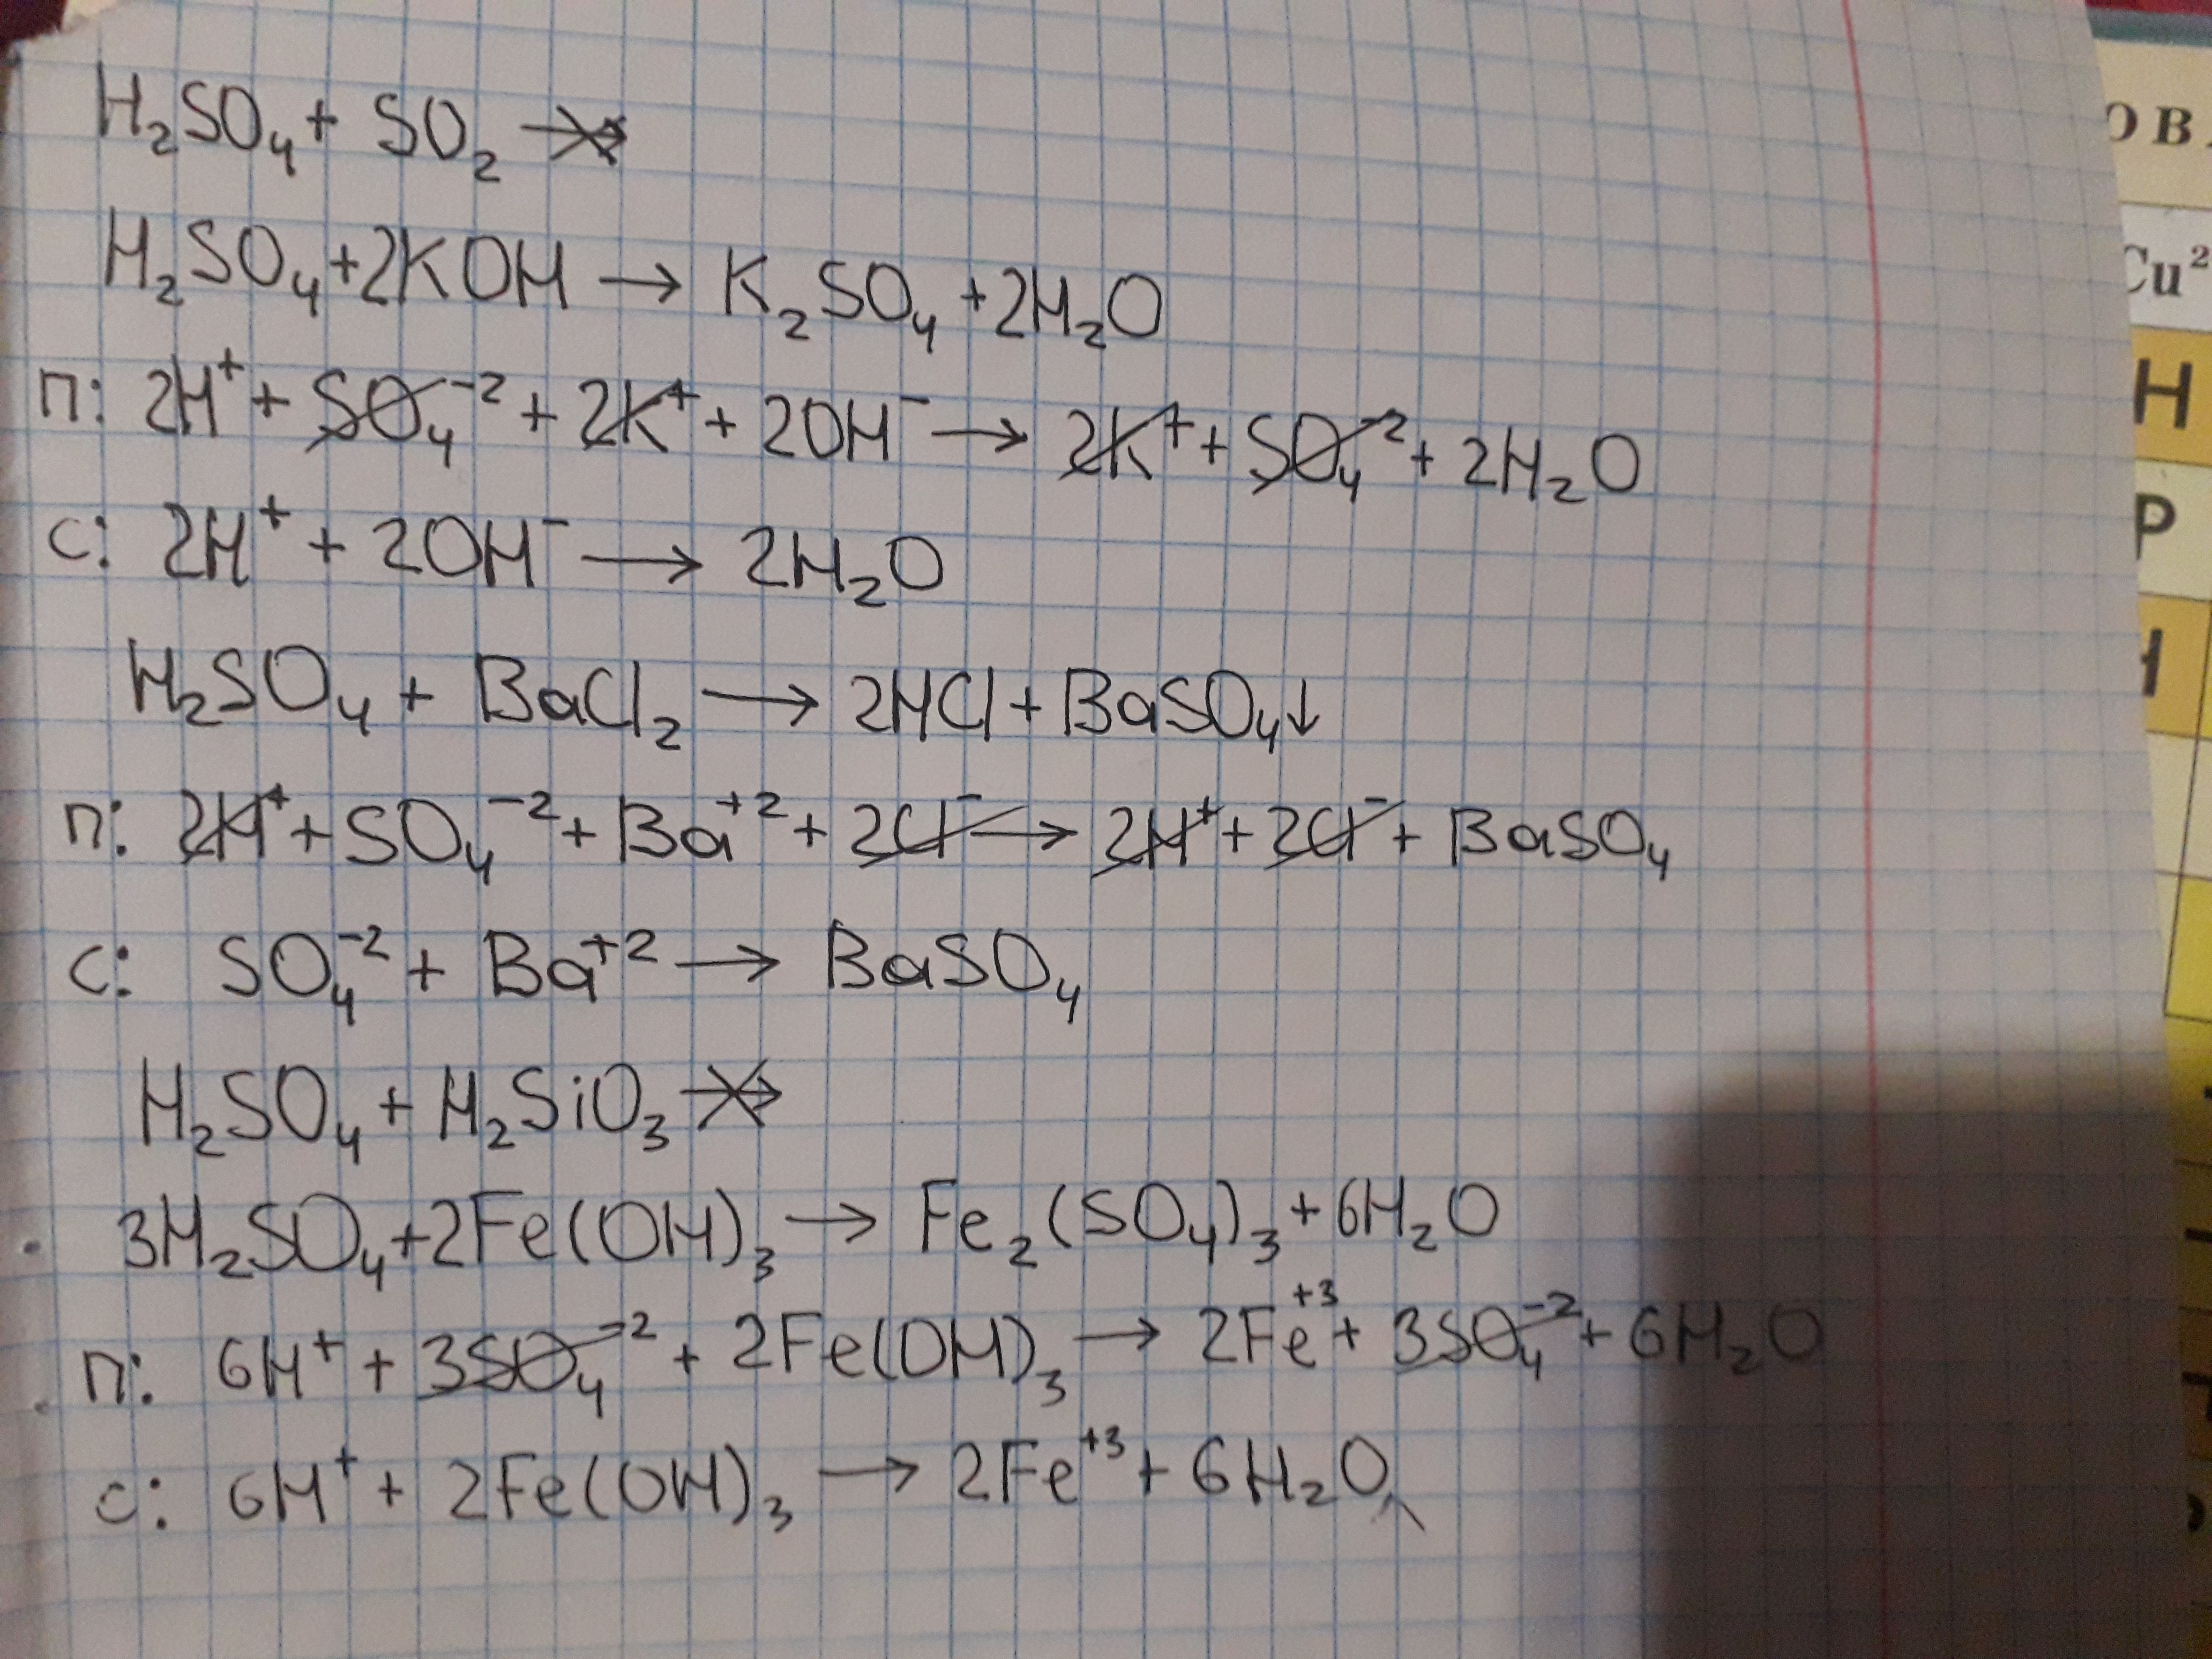 H₂SO₄ + SO₂ ↛
H₂SO₄ + 2KOH → K₂SO₄ + 2H₂O
п: 2H⁺ + SO₄⁻² + 2K⁺ + 2OH⁻ → 2K⁺ + SO₄⁻² + 2H₂O
с: 2H⁺ + 2OH⁻ → 2H₂O
H₂SO₄ + BaCl₂ → 2HCl + BaSO₄↓
п: 2H⁺ + SO₄⁻² + Ba⁺² + 2Cl⁻ → 2H⁺ + 2Cl⁻ + BaSO₄
с: SO₄⁻² + Ba⁺² → BaSO₄
H₂SO₄ + H₂SiO₃ ↛
3H₂SO₄ + 2Fe(OH)₃ → Fe₂(SO₄)₃ + 6H₂O
п: 6H⁺ + 3SO₄⁻² + 2Fe(OH)₃ → 2Fe⁺³ + 3SO₄⁻² + 6H₂O
с: 6H⁺ + 2Fe(OH)₃ → 2Fe⁺³ + 6H₂O
ОВ
Cu²
Н
Р
Н